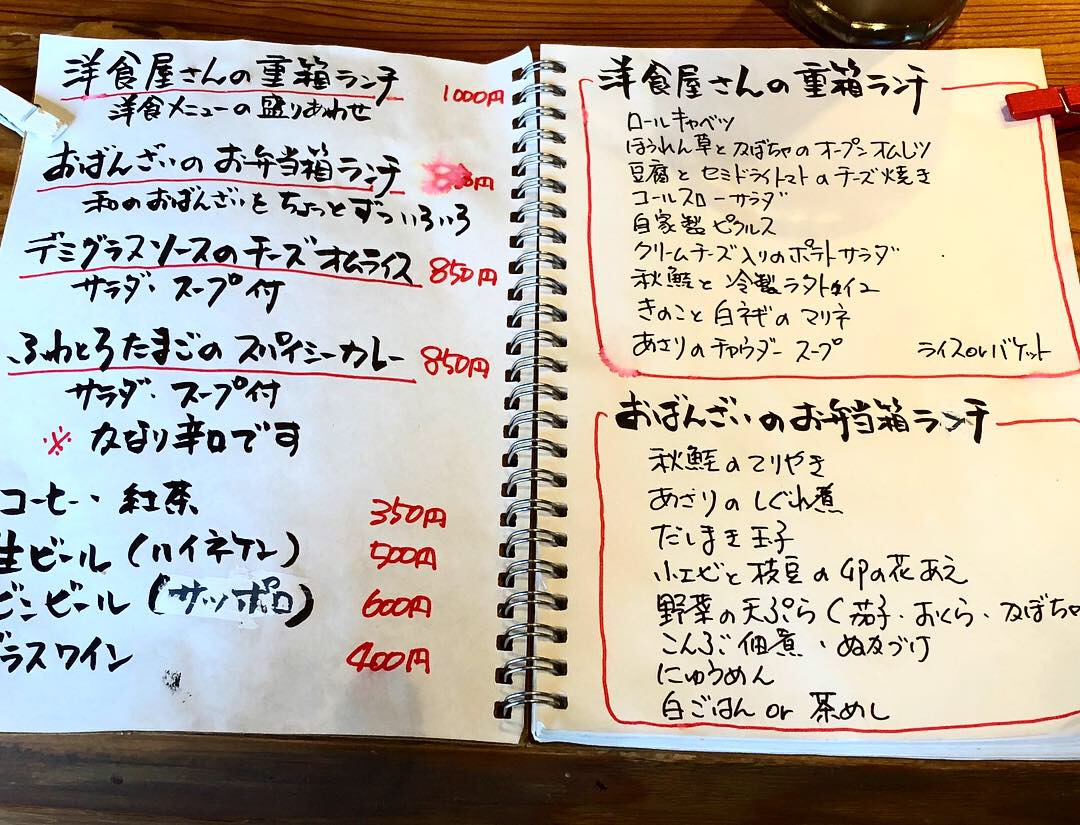 洋食屋さんの重箱ランチ 1000円
洋食メニューの盛りあわせ
おばんざいのお弁当箱ランチ 円
和のおばんざいをちょっとずついろいろ
デミグラスソースのチーズオムライス 850円
サラダ・スープ付
ふわとろたまごのスパイシーカレー 850円
サラダ・スープ付
※ かなり辛口です
コーヒー・紅茶 350円
生ビール(ハイネケン) 500円
ビンビール(サッポロ) 600円
グラスワイン 400円
洋食屋さんの重箱ランチ
ロールキャベツ
ほうれん草とかぼちゃのオープンオムレツ
豆腐とセミドライトマトのチーズ焼き
コールスローサラダ
自家製ピクルス
クリームチーズ入りのポテトサラダ
秋鮭と冷製ラタトゥイユ
きのこと白ネギのマリネ
あさりのチャウダースープ ライスorバケット
おばんざいのお弁当箱ランチ
秋鮭のてりやき
あさりのしぐれ煮
だしまき玉子
小エビと枝豆の卯の花あえ
野菜の天ぷら(茄子・おくら・かぼちゃ
こんぶ佃煮・ぬかづけ
にゅうめん
白ごはん or 茶めし